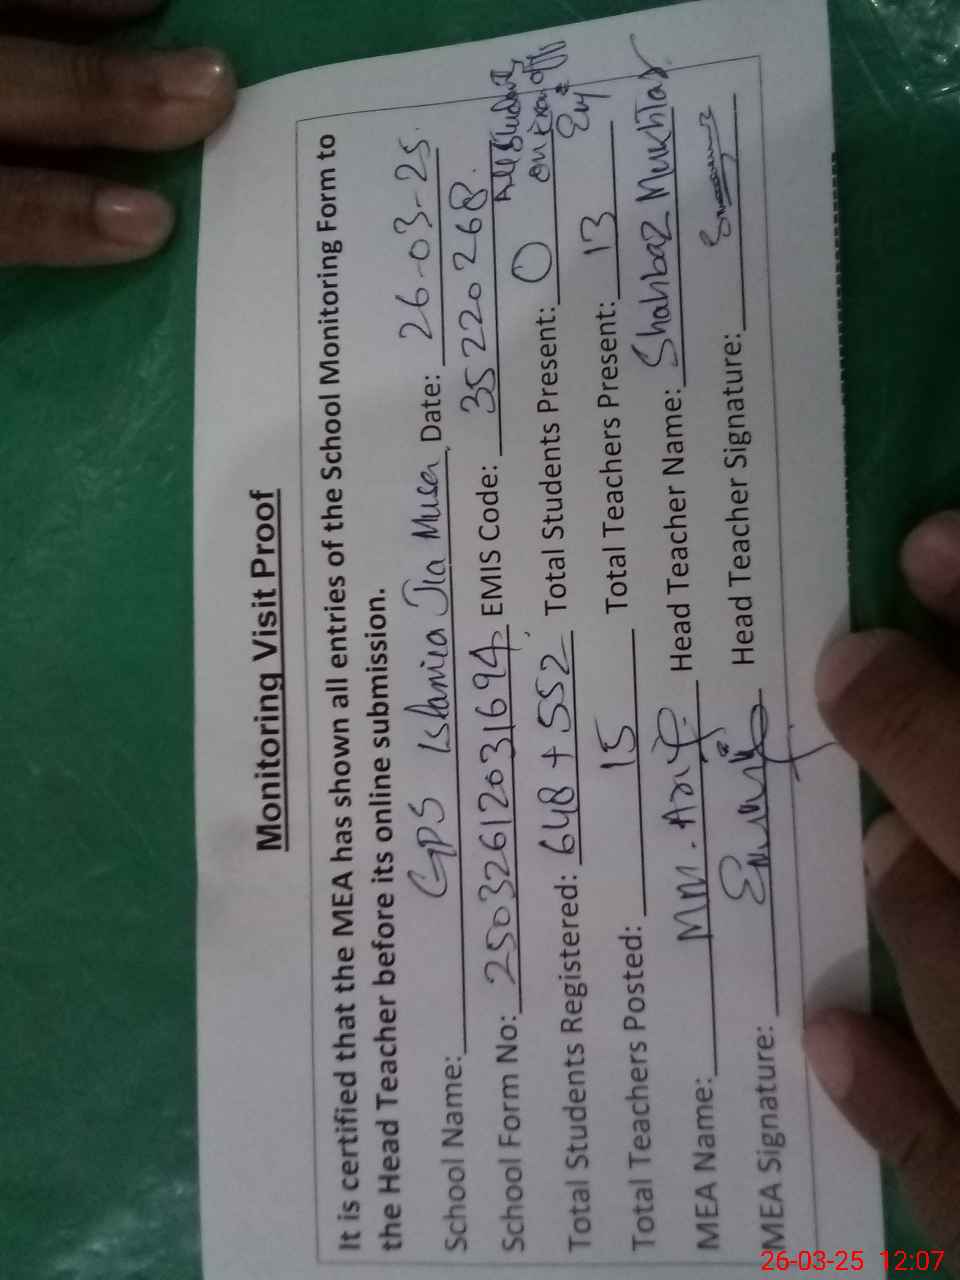 Monitoring Visit Proof
It is certified that the MEA has shown all entries of the School Monitoring Form to
the Head Teacher before its online submission.
School Name: GPS Islamia Jia Musa Date: 26-03-25.
School Form No: 25032612031694 EMIS Code: 35220268.
Total Students Registered: 648 + 552 Total Students Present: 0 All Students on
Total Teachers Posted: 15 Total Teachers Present: 13
MEA Name: MM. Arif Head Teacher Name: Shahbaz Mukhtar
MEA Signature: Head Teacher Signature:
26-03-25 12:07